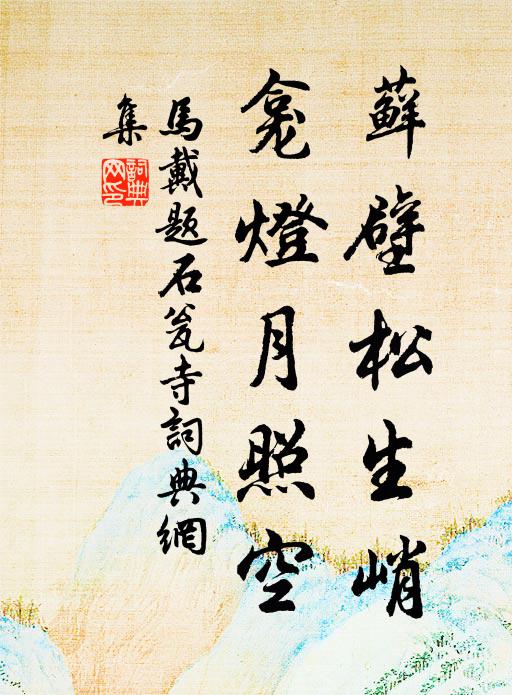 蘚壁松生峭
龕燈月照空
馬戴題石瓮寺詞典網
集
詞典网印